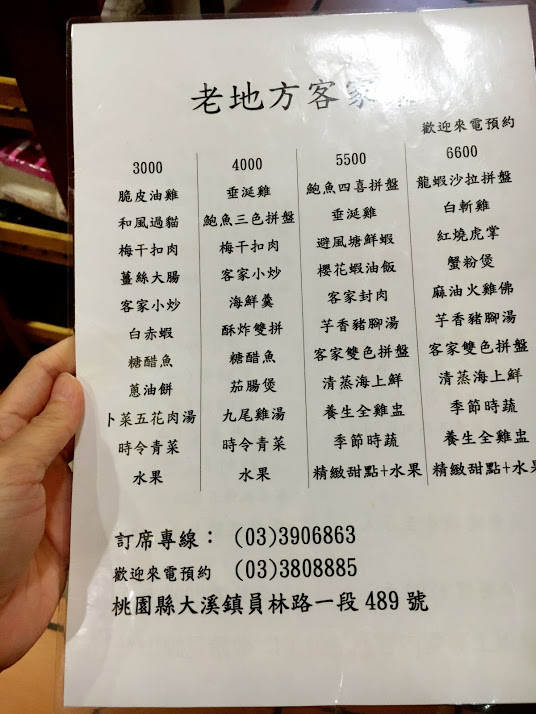 老地方客家
歡迎來電預約
3000 4000 5500 6600
脆皮油雞 垂涎雞 鮑魚四喜拼盤 龍蝦沙拉拼盤
和風過貓 鮑魚三色拼盤 垂涎雞 白斬雞
梅干扣肉 梅干扣肉 避風塘鮮蝦 紅燒虎掌
薑絲大腸 客家小炒 櫻花蝦油飯 蟹粉煲
客家小炒 海鮮羹 客家封肉 麻油火雞佛
白赤蝦 酥炸雙拼 芋香豬腳湯 芋香豬腳湯
糖醋魚 糖醋魚 客家雙色拼盤 客家雙色拼盤
蔥油餅 茄腸煲 清蒸海上鮮 清蒸海上鮮
卜菜五花肉湯 九尾雞湯 養生全雞盅 季節時蔬
時令青菜 時令青菜 季節時蔬 養生全雞盅
水果 水果 精緻甜點+水果 精緻甜點+水果
訂席專線： (03)3906863
歡迎來電預約 (03)3808885
桃園縣大溪鎮員林路一段 489 號